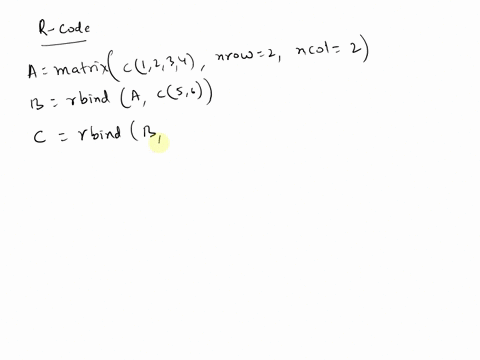 R-code
A = matrix( c(1,2,3,4), nrow=2, ncol=2)
B = rbind (A, c(5,6))
C = rbind (B,